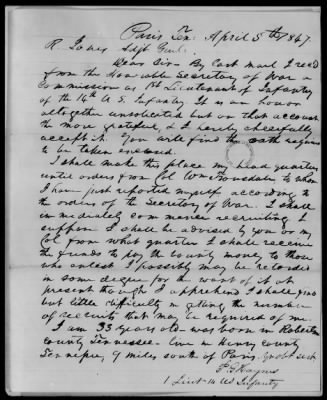 Paris Ten. April 5th 1847
R. Jones Adjt Genl.
Dear Sir - By last mail I recd
from the Honorable Secretary of War a
Commission as 1st Lieutenant of Infantry
of the 14th U.S. Infantry It is an honor
altogether unsolicited but on that account
the more grateful, & I hereby cheerfully
accept it. You will find the oath required
to be taken enclosed.
I shall make this place my head quarters
until orders from Col Wm Trousdale to whom
I have just reported myself according to
the orders of the Secretary of War. I shall
immediately commence recruiting. I
suppose I shall be advised by you or my
Col from what quarter I shall receive
the funds to pay the bounty money to those
who enlist I possibly may be retarded
in some degree for the want of it at
present though I apprehend I shall find
but little difficulty in getting the number
of recruits that may be required of me.
I am 33 years old was born in Robertson
county Tennessee - live in Henry county
Tennessee 9 miles south of Paris.
1 Lieut 14 US Infantry